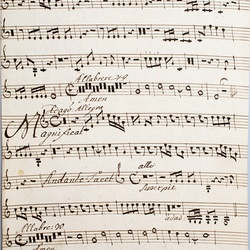 Allabreve 49
Amen
Adagio Allegro
Magnificat
Andante Tacet
allo
Suscepit
Allabre: 90
Amen